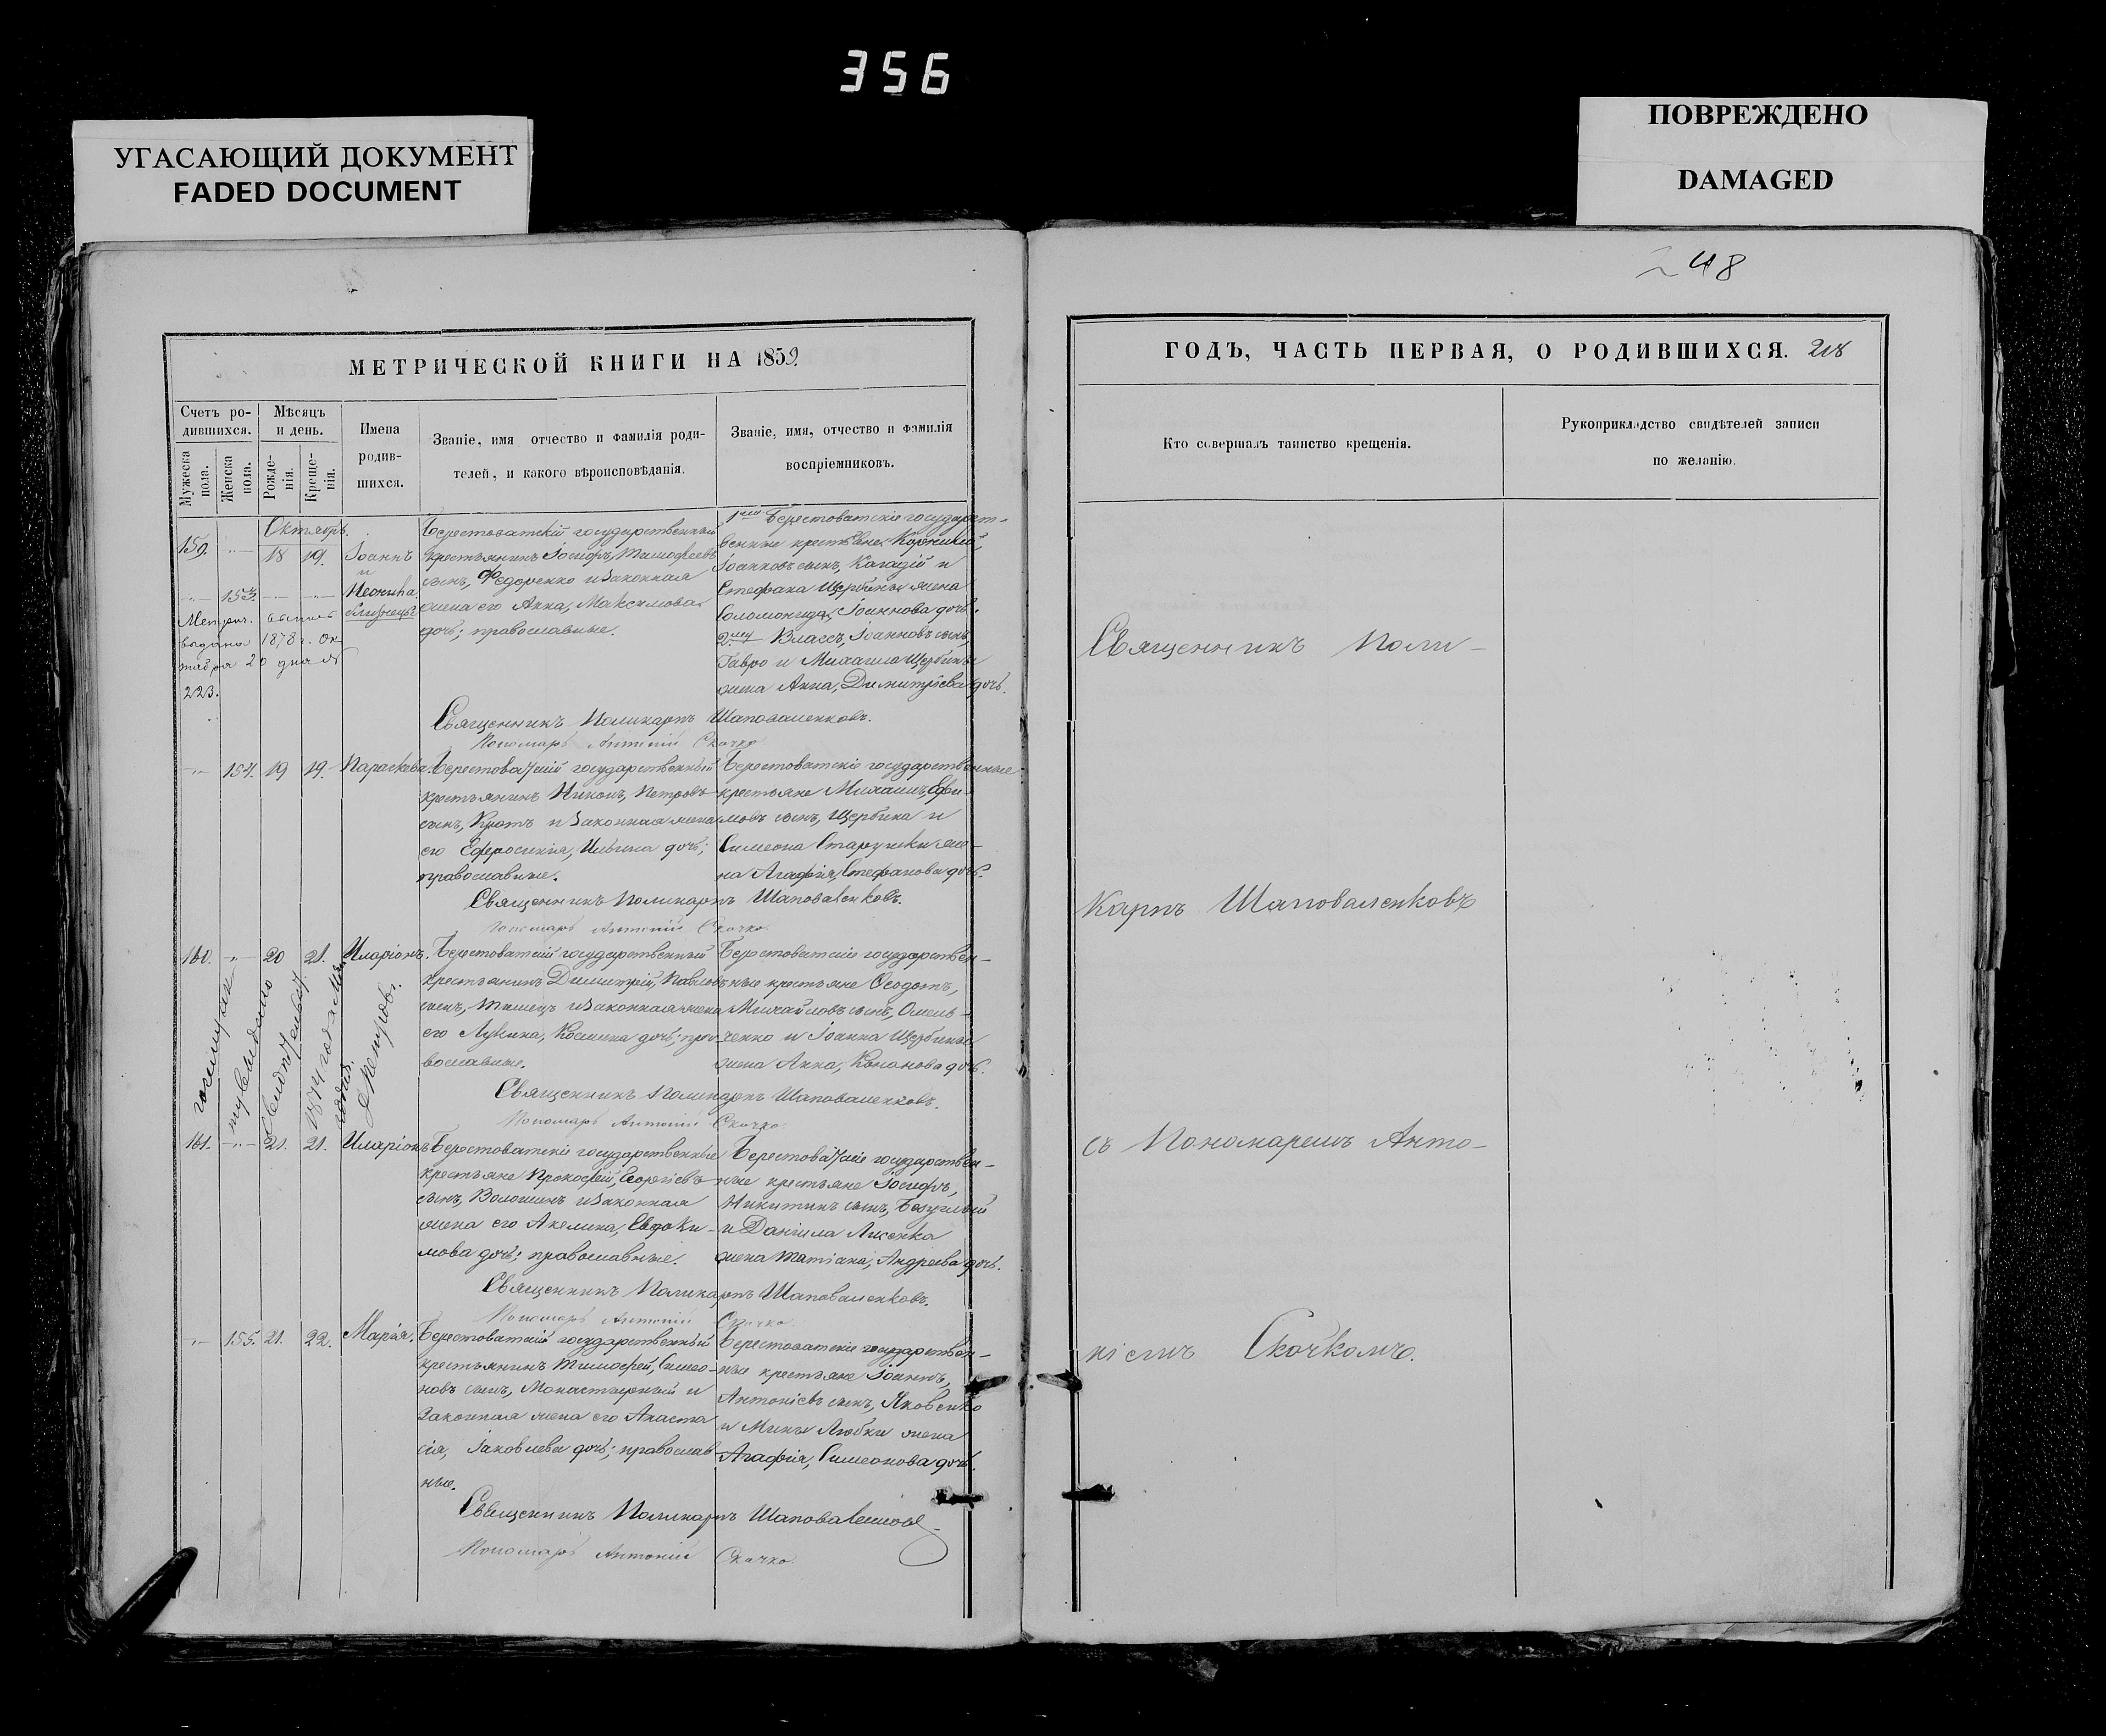 356
УГАСАЮЩИЙ ДОКУМЕНТ
FADED DOCUMENT
ПОВРЕЖДЕНО
DAMAGED
МЕТРИЧЕСКОЙ КНИГИ НА 1859.
Счетъ ро-
дившихся.
Мѣсяцъ
и день.
Мужеска
пола.
Женска
пола.
Рожде-
нія.
Креще-
нія.
Имена
родив-
шихся.
Званіе, имя отчество и фамилія роди-
телей, и какого вѣроисповѣданія.
Званіе, имя, отчество и фамилія
воспріемниковъ.
Октябрь.
159. 18 19. Іоаннъ
и
153. Неонила
близнецы
Метрич.
выдано 1878 г. Ок
тября 20 дня №
223.
Берестоватскій государственный
крестьянинъ Іосифъ, Тимофеевъ
сынъ, Федоренко и законная
жена его Анна, Максимова
дочь; православные.
Берестоватскіе государст-
венные крестьяне
Іоанновъ сынъ, и
Стефана Щербины жена
Соломонида, Іоаннова дочь.
Власъ, Іоанновъ сынъ,
и Михаила Щербины
жена Анна, Димитріева дочь.
Священникъ Поликарпъ Шаповаленковъ.
Пономарь Антоній Скочко
154. 19 19. Параскева.
Берестоватскій государственный
крестьянинъ Никонъ, Петровъ
сынъ, Кротъ и законная жена
его Ефросинія, Ильина дочь;
православные.
Берестоватскіе государственные
крестьяне Михаилъ, Ефи-
мовъ сынъ, Щербина и
Симеона же-
на Агафія, Стефанова дочь.
Священникъ Поликарпъ Шаповаленковъ.
Пономарь Антоній Скочко.
160. 20 21. Иларіонъ.
Берестоватскій государственный
крестьянинъ Димитрій, Павловъ
сынъ, и законная жена
его Лукина, Космина дочь; пра-
вославные.
Берестоватскіе государствен-
ные крестьяне Ѳеодотъ,
Михайловъ сынъ, Омель-
ченко и Іоанна Щербины
жена Анна, Кононова дочь.
Священникъ Поликарпъ Шаповаленковъ.
Пономарь Антоній Скочко.
161. 21. 21. Иларіонъ
Берестоватскіе государственные
крестьяне Прокофій, Георгіевъ
сынъ, Волошинъ и законная
жена его Акилина, Евдоки-
мова дочь; православные.
Берестоватскіе государствен-
ные крестьяне Іосифъ,
Никитинъ сынъ, Безуглый
и Даніила Лисенка
жена Татіана, Андреева дочь.
Священникъ Поликарпъ Шаповаленковъ.
Пономарь Антоній Скочко.
155. 21. 22. Марія.
Берестоватскій государственный
крестьянинъ Тимофей, Симео-
новъ сынъ, Монастырный и
законная жена его Анаста
сія, Іаковлева дочь; православ
ные.
Берестоватскіе государствен-
ные крестьяне Іоаннъ,
Антоніевъ сынъ, Яковенко
и Мины Любки жена
Агафія, Симеонова дочь.
Священникъ Поликарпъ Шаповаленковъ
Пономарь Антоній Скочко.
248
ГОДЪ, ЧАСТЬ ПЕРВАЯ, О РОДИВШИХСЯ. 218
Кто совершалъ таинство крещенія.
Рукоприкладство свидѣтелей записи
по желанію.
Священникъ Поли-
карпъ Шаповаленковъ
съ Пономаремъ Анто-
ніемъ Скочкомъ.